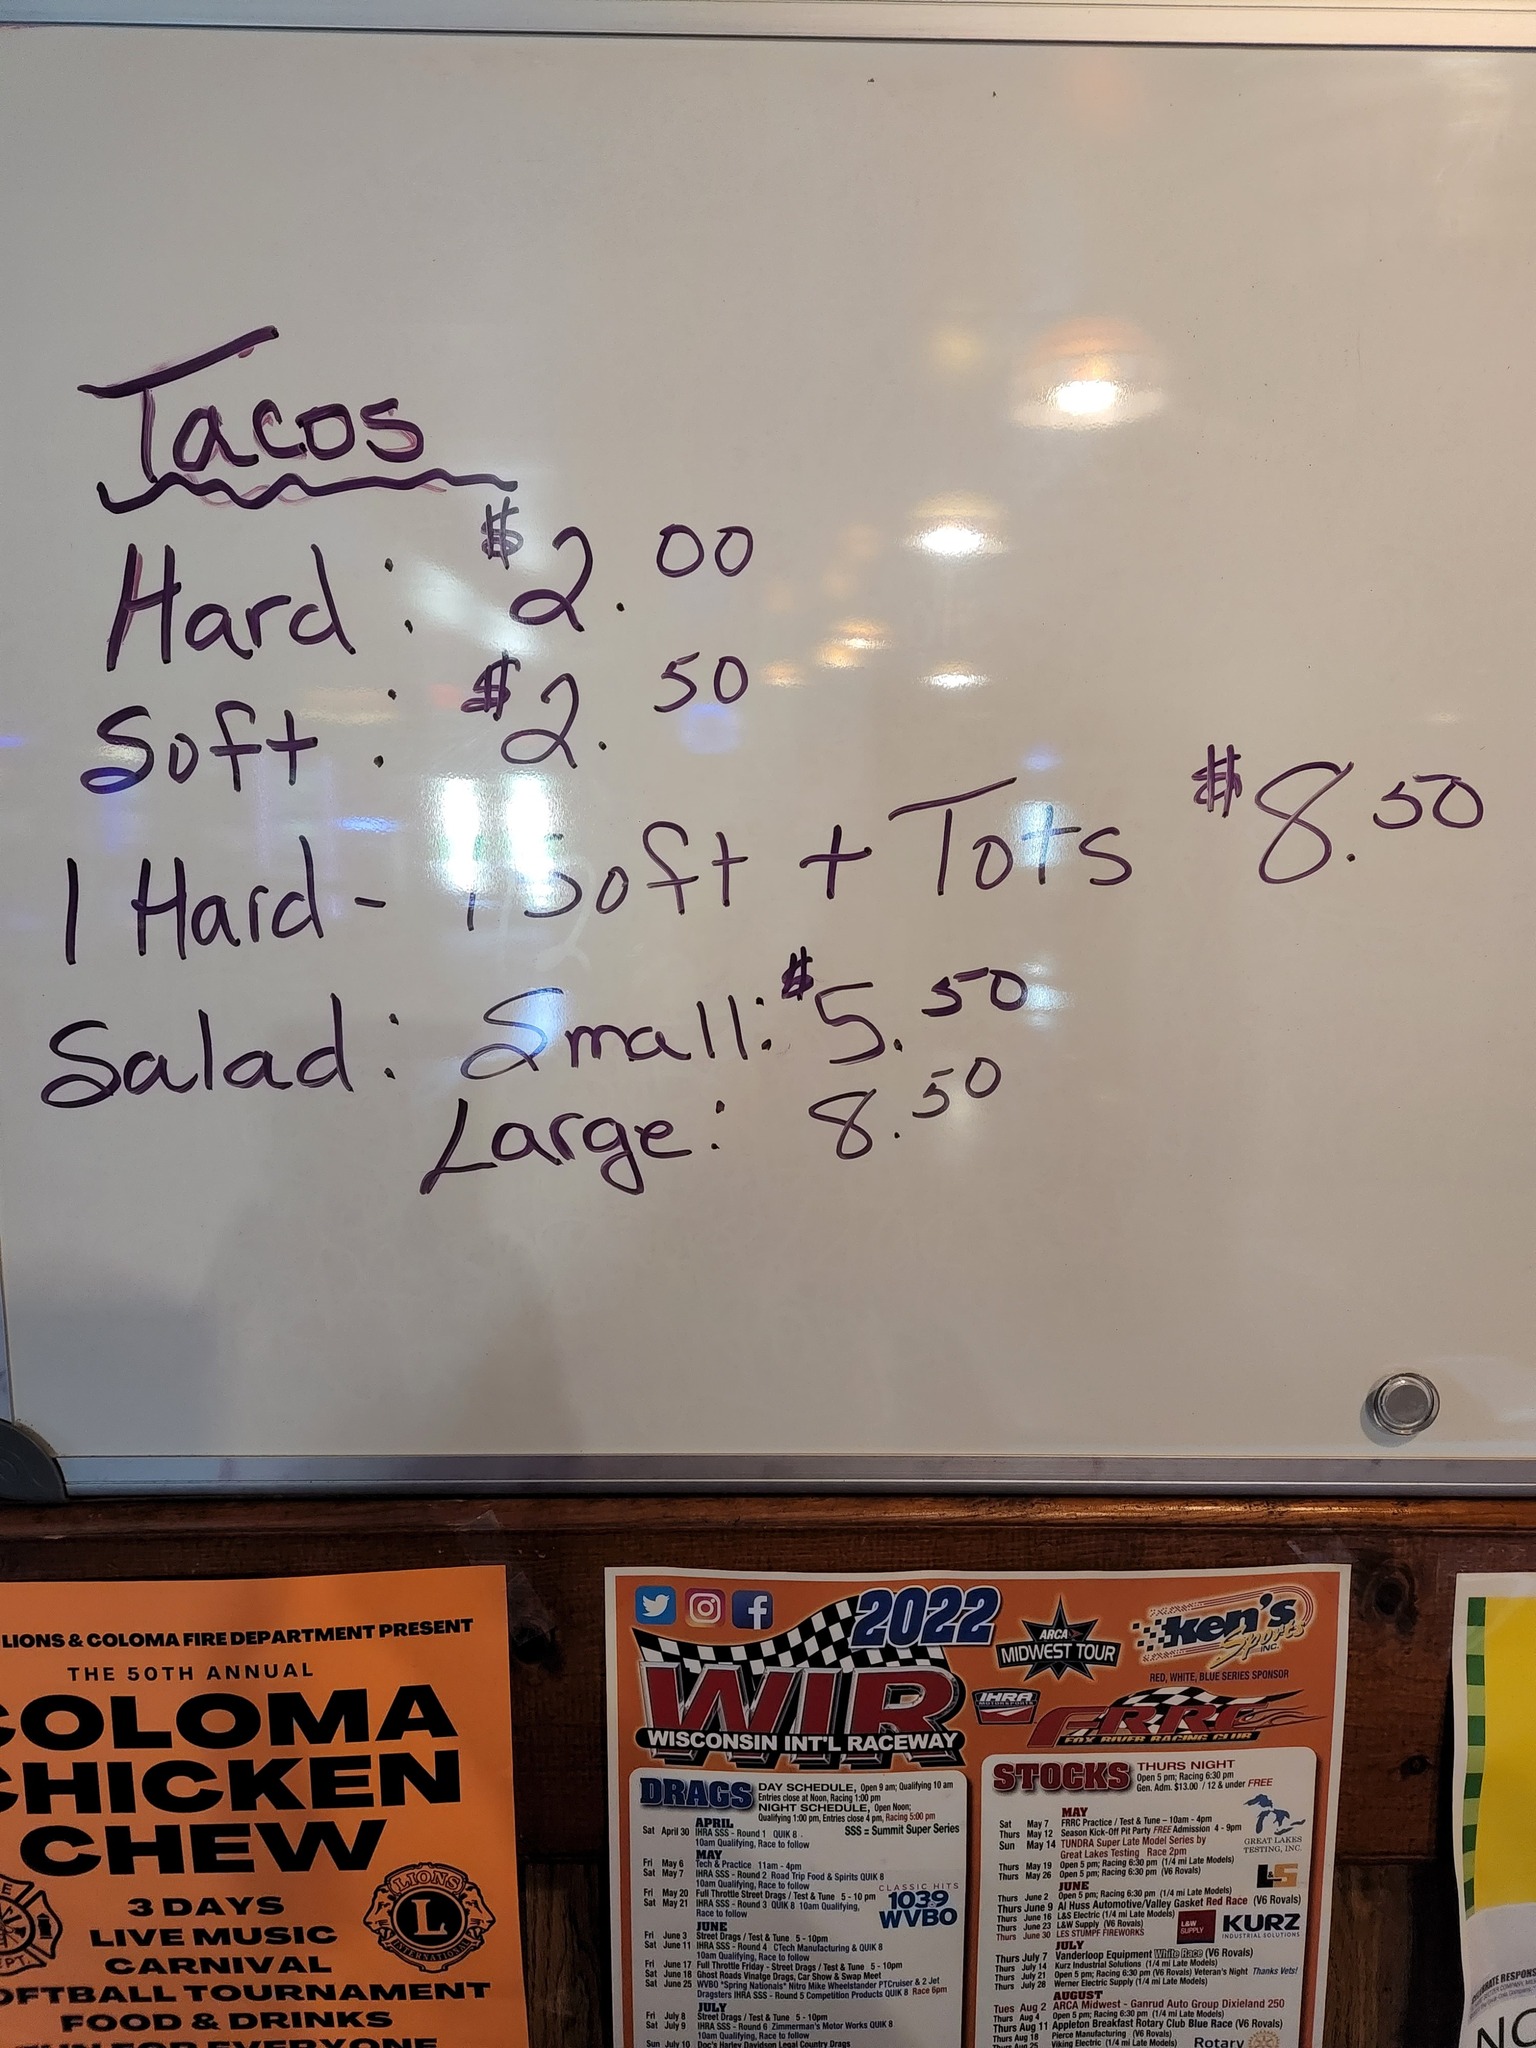 Tacos
Hard: $2.00
Soft: $2.50
1 Hard - 1 Soft + Tots $8.50
Salad: Small: $5.50
Large: 8.50
LIONS & COLOMA FIRE DEPARTMENT PRESENT
THE 50TH ANNUAL
COLOMA
CHICKEN
CHEW
3 DAYS
LIVE MUSIC
CARNIVAL
OFTBALL TOURNAMENT
FOOD & DRINKS
FUN FOR EVERYONE
LIONS
L
INTERNATIONAL
2022
WIR
WISCONSIN INT'L RACEWAY
ARCA
MIDWEST TOUR
Ken's
Sports
INC.
RED, WHITE, BLUE SERIES SPONSOR
IHRA
MOTORSPORTS
FRRC
FOX RIVER RACING CLUB
DRAGS
DAY SCHEDULE, Open 9 am; Qualifying 10 am
Entries close at Noon, Racing 1:00 pm
NIGHT SCHEDULE, Open Noon;
Qualifying 1:00 pm, Entries close 4 pm, Racing 5:00 pm
SSS = Summit Super Series
APRIL
Sat April 30 IHRA SSS - Round 1 QUIK 8
10am Qualifying, Race to follow
MAY
Fri May 6 Tech & Practice 11am - 4pm
Sat May 7 IHRA SSS - Round 2 Road Trip Food & Spirits QUIK 8
10am Qualifying, Race to follow
Fri May 20 Full Throttle Street Drags / Test & Tune 5 - 10 pm
Sat May 21 IHRA SSS - Round 3 QUIK 8 10am Qualifying,
Race to follow
CLASSIC HITS
103.9
WVBO
JUNE
Fri June 3 Street Drags / Test & Tune 5 - 10pm
Sat June 11 IHRA SSS - Round 4 CTech Manufacturing & QUIK 8
10am Qualifying, Race to follow
Fri June 17 Full Throttle Friday - Street Drags / Test & Tune 5 - 10pm
Sat June 18 Ghost Roads Vinatge Drags, Car Show & Swap Meet
Sat June 25 WVBO "Spring Nationals" Nitro Mike Wheelstander PTCruiser & 2 Jet
Dragsters IHRA SSS - Round 5 Competition Products QUIK 8 Race 6pm
JULY
Fri July 8 Street Drags / Test & Tune 5 - 10pm
Sat July 9 IHRA SSS - Round 6 Zimmerman's Motor Works QUIK 8
10am Qualifying, Race to follow
Sun July 10 Doc's Harley Davidson Legal Country Drags
STOCKS
THURS NIGHT
Open 5 pm; Racing 6:30 pm
Gen. Adm. $13.00 / 12 & under FREE
MAY
Sat May 7 FRRC Practice / Test & Tune – 10am - 4pm
Thurs May 12 Season Kick-Off Pit Party FREE Admission 4 - 9pm
Sun May 14 TUNDRA Super Late Model Series by
Great Lakes Testing Race 2pm
Thurs May 19 Open 5 pm; Racing 6:30 pm (1/4 mi Late Models)
Thurs May 26 Open 5 pm; Racing 6:30 pm (V6 Rovals)
GREAT LAKES
TESTING, INC.
L&S
JUNE
Thurs June 2 Open 5 pm; Racing 6:30 pm (1/4 mi Late Models)
Thurs June 9 Al Huss Automotive/Valley Gasket Red Race (V6 Rovals)
Thurs June 16 L&S Electric (1/4 mi Late Models)
Thurs June 23 L&W Supply (V6 Rovals)
Thurs June 30 LES STUMPF FIREWORKS
L&W
SUPPLY
KURZ
INDUSTRIAL SOLUTIONS
JULY
Thurs July 7 Vanderloop Equipment White Race (V6 Rovals)
Thurs July 14 Kurz Industrial Solutions (1/4 mi Late Models)
Thurs July 21 Open 5 pm; Racing 6:30 pm (V6 Rovals) Veteran's Night Thanks Vets!
Thurs July 28 Werner Electric Supply (1/4 mi Late Models)
AUGUST
Tues Aug 2 ARCA Midwest - Ganrud Auto Group Dixieland 250
Thurs Aug 4 Open 5 pm; Racing 6:30 pm (1/4 mi Late Models)
Thurs Aug 11 Appleton Breakfast Rotary Club Blue Race (V6 Rovals)
Thurs Aug 18 Pierce Manufacturing (V6 Rovals)
Thurs Aug 25 Viking Electric (1/4 mi Late Models)
Rotary